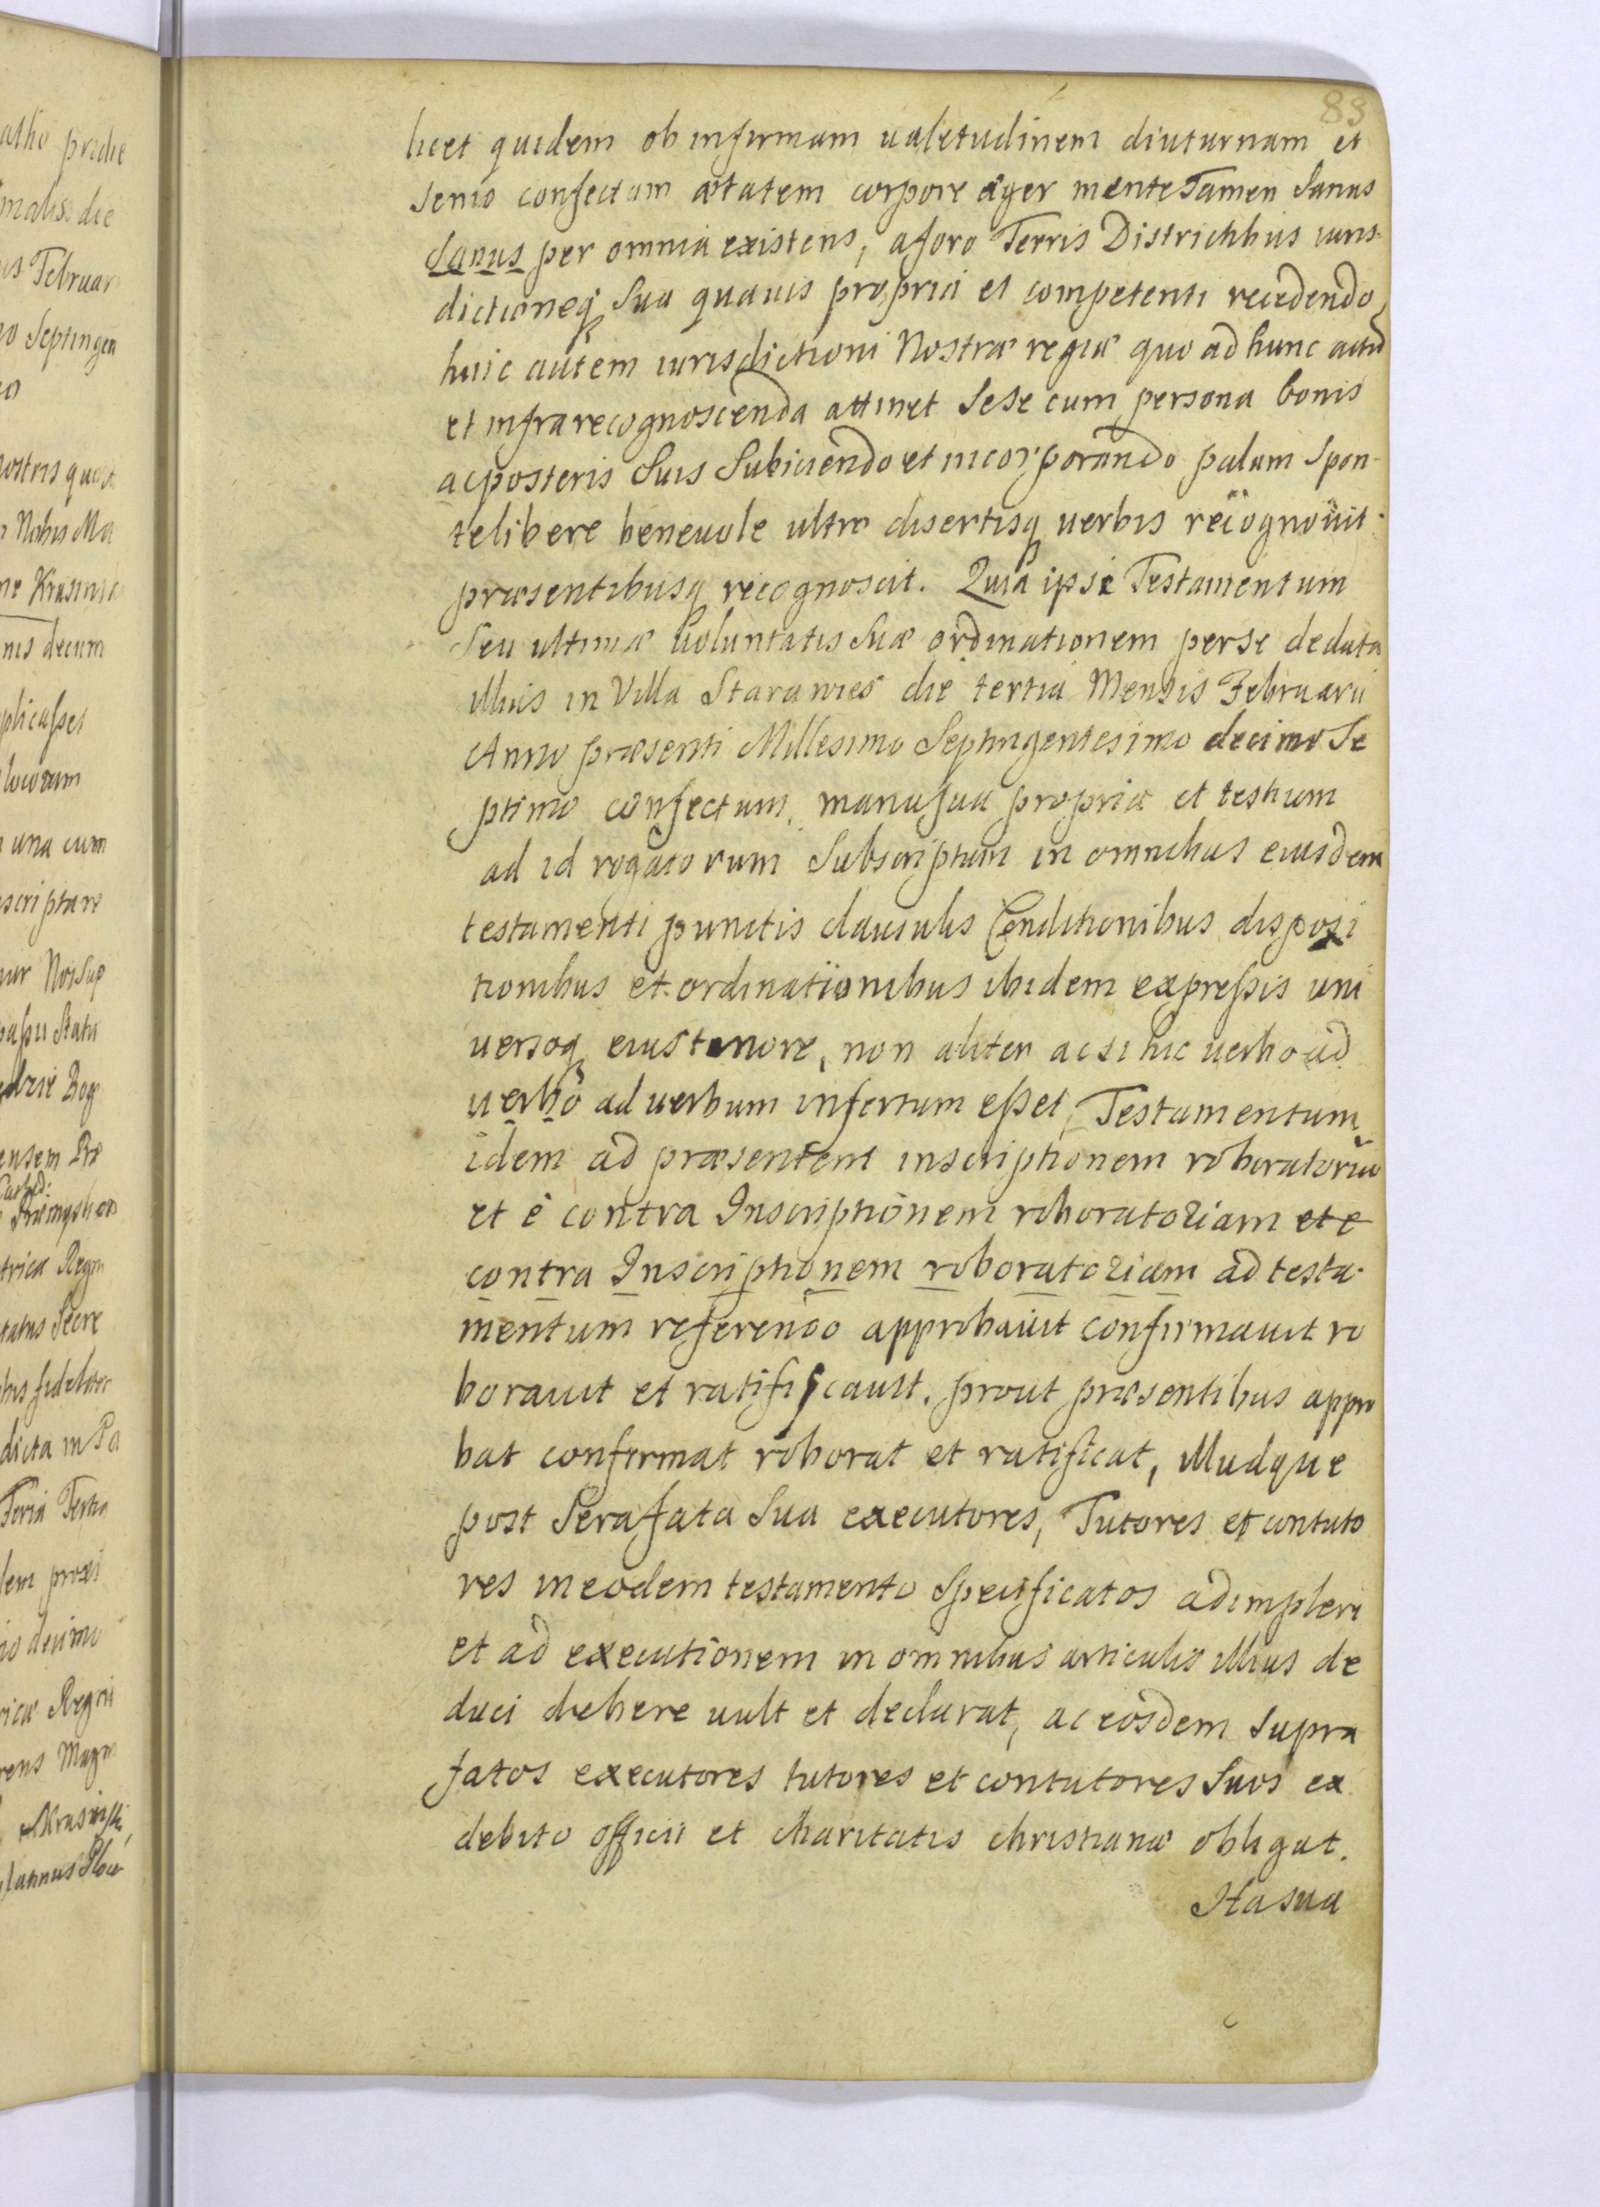 83
licet quidem ob infirmam ualetudinem diuturnam et
senio confectam ætatem corpore æger mente Tamen Sanus
Sanus per omnia existens, a foro Terris Districtibus iuris-
dictioneq Sua quauis propria et competenti recedendo,
huic autem iurisdictioni Nostræ regiæ quo ad hunc actũ
et infra recognoscenda attinet Sese cum persona bonis
ac posteris Suis Subiiciendo et incorporando palam Spon-
te libere beneuole ultro disertisq uerbis recognouit
præsentibusq recognoscit. Quia ipse Testamentum
Seu ultimæ uoluntatis Suæ ordinationem per se de data
illius in Villa Starawies die tertia Mensis Februarii
Anno præsenti Millesimo Septingentesimo decimo Se
ptimo confectum, manu sua propria et testium
ad id rogatorum Subscriptum in omnibus eiusdem
testamenti punctis clausulis Conditionibus disposi
tionibus et ordinationibus ibidem expressis uni
uersoq eius tenore, non aliter ac si hic uerbo ad
uerbo ad uerbum insertum esset, Testamentum
idem ad præsentem inscriptionem roboratoriã
et è contra Inscriptionem roboratoriam et e
contra Inscriptionem roboratoriam ad testa-
mentum referendo approbauit confirmauit ro
borauit et ratificauit, prout præsentibus appro
bat confirmat roborat et ratificat, illudque
post Sera fata Sua executores, Tutores et contuto
res in eodem testamento Specificatos adimplere
et ad executionem in omnibus articulis illius de
duci debere uult et declarat, ac eosdem Supra
fatos executores tutores et contutores Suos ex
debito officii et charitatis christianæ obligat.
Ita sua